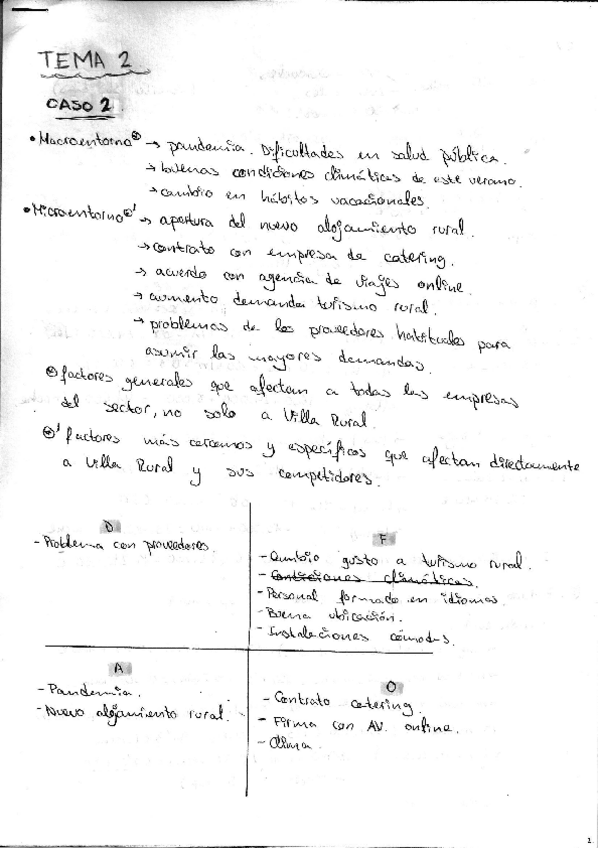 TEMA 2
CASO 2.
• Macroentorno⊛ → pandemia. Dificultades en salud pública.
→ buenas condiciones climáticas de este verano.
→ cambio en hábitos vacacionales.
• Microentorno⊛' → apertura del nuevo alojamiento rural.
→ contrato con empresa de catering.
→ acuerdo con agencia de viajes online.
→ aumento demanda turismo rural.
→ problemas de los proveedores habituales para
asumir las mayores demandas.
⊛ factores generales que afectan a todas las empresas
del sector, no solo a Villa Rural.
⊛' factores más cercanos y específicos que afectan directamente
a Villa Rural y sus competidores.
D
- Problema con proveedores.
F
- Cambio gusto a turismo rural.
- Condiciones climáticas.
- Personal formado en idiomas
- Buena ubicación.
- Instalaciones cómodas.
A
- Pandemia.
- Nuevo alojamiento rural.
O
- Contrato catering.
- Firma con AV. online.
- Clima.
1